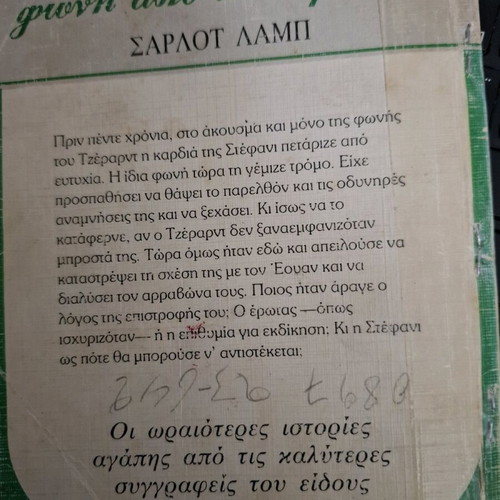 φωνή από
ΣΑΡΛΟΤ ΛΑΜΠ
Πριν πέντε χρόνια, στο άκουσμα και μόνο της φωνής
του Τζέραρντ η καρδιά της Στέφανι πετάριζε από
ευτυχία. Η ίδια φωνή τώρα τη γέμιζε τρόμο. Είχε
προσπαθήσει να θάψει το παρελθόν και τις οδυνηρές
αναμνήσεις της και να ξεχάσει. Κι ίσως να το
κατάφερνε, αν ο Τζέραρντ δεν ξαναεμφανιζόταν
μπροστά της. Τώρα όμως ήταν εδώ και απειλούσε να
καταστρέψει τη σχέση της με τον Έουαν και να
διαλύσει τον αρραβώνα τους. Ποιος ήταν άραγε ο
λόγος της επιστροφής του; Ο έρωτας —όπως
ισχυριζόταν— ή η επιθυμία για εκδίκηση; Κι η Στέφανι
ως πότε θα μπορούσε ν' αντιστέκεται;
Οι ωραιότερες ιστορίες
αγάπης από τις καλύτερες
συγγραφείς του είδους